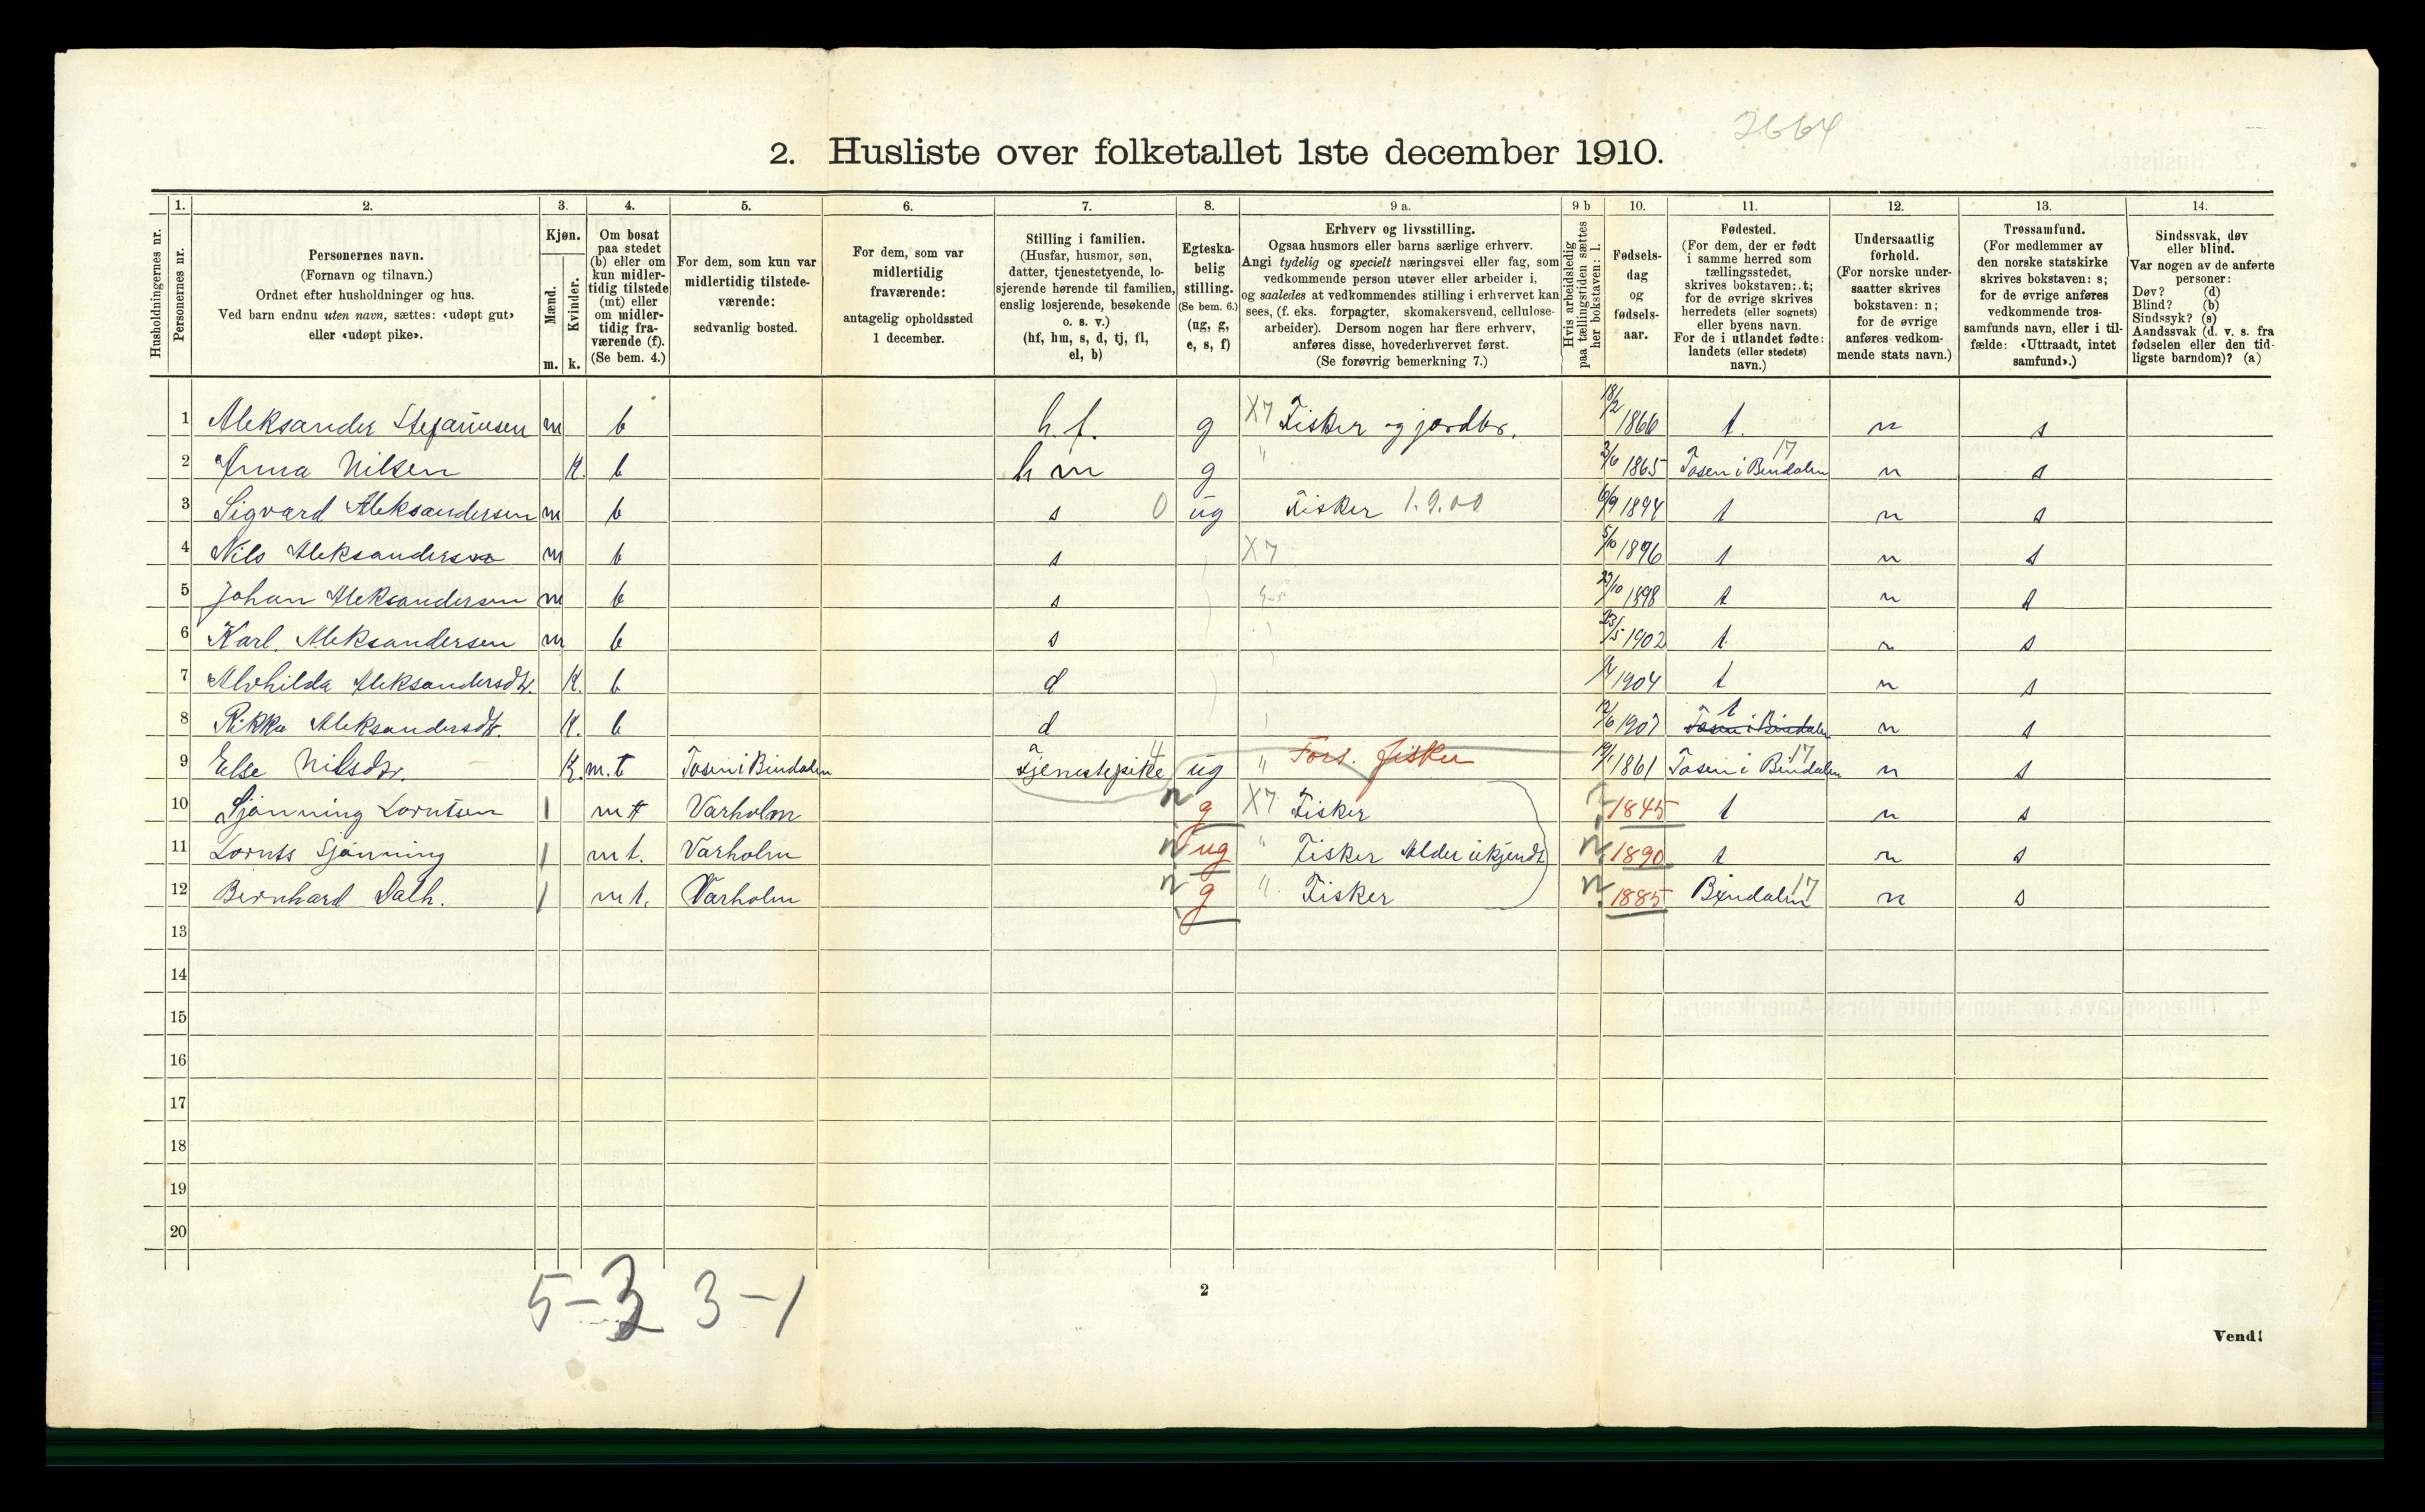 2664
2. Husliste over folketallet 1ste december 1910.
1. 2. 3. 4. 5. 6. 7. 8. 9 a. 9 b 10. 11. 12. 13. 14.
Husholdningernes nr.
Personernes nr.
Personernes navn.
(Fornavn og tilnavn.)
Ordnet efter husholdninger og hus.
Ved barn endnu uten navn, sættes: «udøpt gut»
eller «udøpt pike».
Kjøn.
Mænd.
Kvinder.
m. k.
Om bosat
paa stedet
(b) eller om
kun midler-
tidig tilstede
(mt) eller
om midler-
tidig fra-
værende (f).
(Se bem. 4.)
For dem, som kun var
midlertidig tilstede-
værende:
sedvanlig bosted.
For dem, som var
midlertidig
fraværende:
antagelig opholdssted
1 december.
Stilling i familien.
(Husfar, husmor, søn,
datter, tjenestetyende, lo-
sjerende hørende til familien,
enslig losjerende, besøkende
o. s. v.)
(hf, hm, s, d, tj, fl,
el, b)
Egteska-
belig
stilling.
(Se bem. 6.)
(ug, g,
e, s, f)
Erhverv og livsstilling.
Ogsaa husmors eller barns særlige erhverv.
Angi tydelig og specielt næringsvei eller fag, som
vedkommende person utøver eller arbeider i,
og saaledes at vedkommendes stilling i erhvervet kan
sees, (f. eks. forpagter, skomakersvend, cellulose-
arbeider). Dersom nogen har flere erhverv,
anføres disse, hovederhvervet først.
(Se forøvrig bemerkning 7.)
Hvis arbeidsledig
paa tællingstiden sættes
her bokstaven: l.
Fødsels-
dag
og
fødsels-
aar.
Fødested.
(For dem, der er født
i samme herred som
tællingsstedet,
skrives bokstaven: t;
for de øvrige skrives
herredets (eller sognets)
eller byens navn.
For de i utlandet fødte:
landets (eller stedets)
navn.)
Undersaatlig
forhold.
(For norske under-
saatter skrives
bokstaven: n;
for de øvrige
anføres vedkom-
mende stats navn.)
Trossamfund.
(For medlemmer av
den norske statskirke
skrives bokstaven: s;
for de øvrige anføres
vedkommende tros-
samfunds navn, eller i til-
fælde: «Uttraadt, intet
samfund».)
Sindssvak, døv
eller blind.
Var nogen av de anførte
personer:
Døv? (d)
Blind? (b)
Sindssyk? (s)
Aandssvak (d. v. s. fra
fødselen eller den tid-
ligste barndom)? (a)
1 Aleksander Stefanusen m b h.f. g X7 Fisker og jordbr. 18/2 1866 t. n s
2 Anna Nilsen K. b hm g " 3/6 1865 Tosen i Bindalen 17 n s
3 Sigvard Aleksandersen m b s 0 ug Fisker 1.9.00 6/9 1894 t n s
4 Nils Aleksandersen m b s X7 5/10 1896 t n s
5 Johan Aleksandersen m b s 23/10 1898 t n s
6 Karl. Aleksandersen m b s 23/5 1902 t. n s
7 Alvhilda Aleksandersdtr. K. b d 1904 t n s
8 Rikka Aleksandersdtr. K. b d 12/6 1907 t Tosen i Bindalen n s
9 Else Nilsdtr. K. m.t Tosen i Bindalen Tjenestepike 4 ug " Fors. fisker 19/1 1861 Tosen i Bindalen 17 n s
10 Sjønning Lorntsen 1 mt Varholm n g X7 Fisker 1845 t n s
11 Lornts Sjønning 1 mt. Varholm n ug " Fisker Alder ukjendt n 1890 t n s
12 Bernhard Dalh. 1 mt. Varholm n g " Fisker n 1885 Bindalen 17 n s
13
14
15
16
17
18
19
20
5-3 2 3-1
2
Vend!